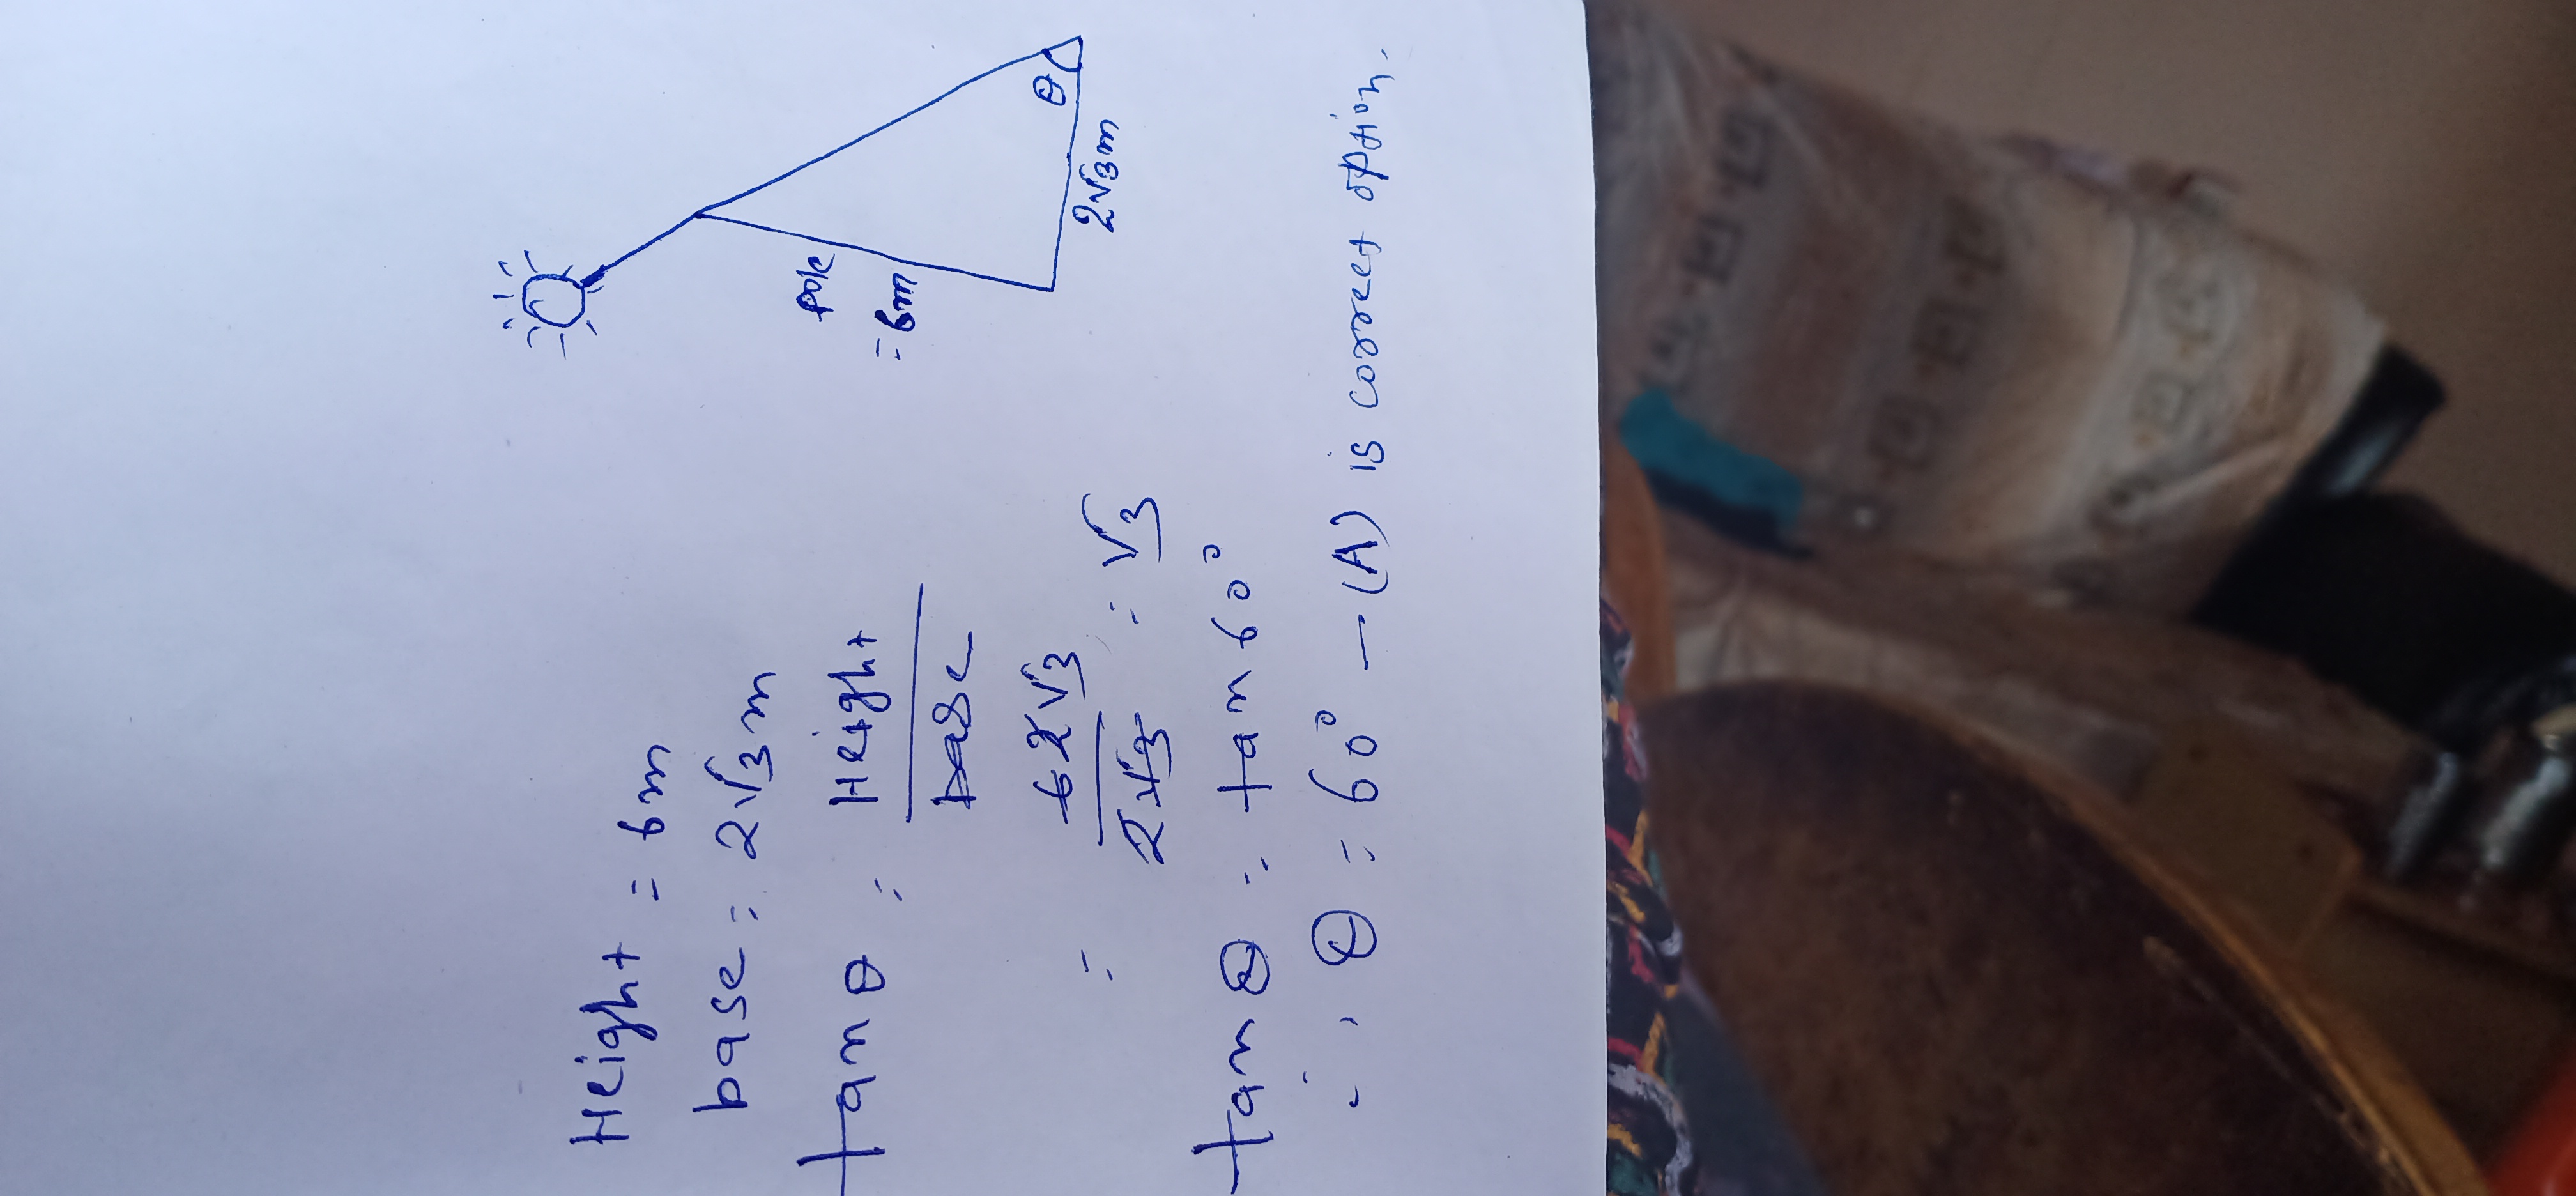 Height = 6m
base = 2√3m
tan θ = Height
base
= 6 2√3 = √3
2√3
tan θ = tan 60°
∴ θ = 60° — (A) is correct option.
pole
= 6m
θ
2√3m